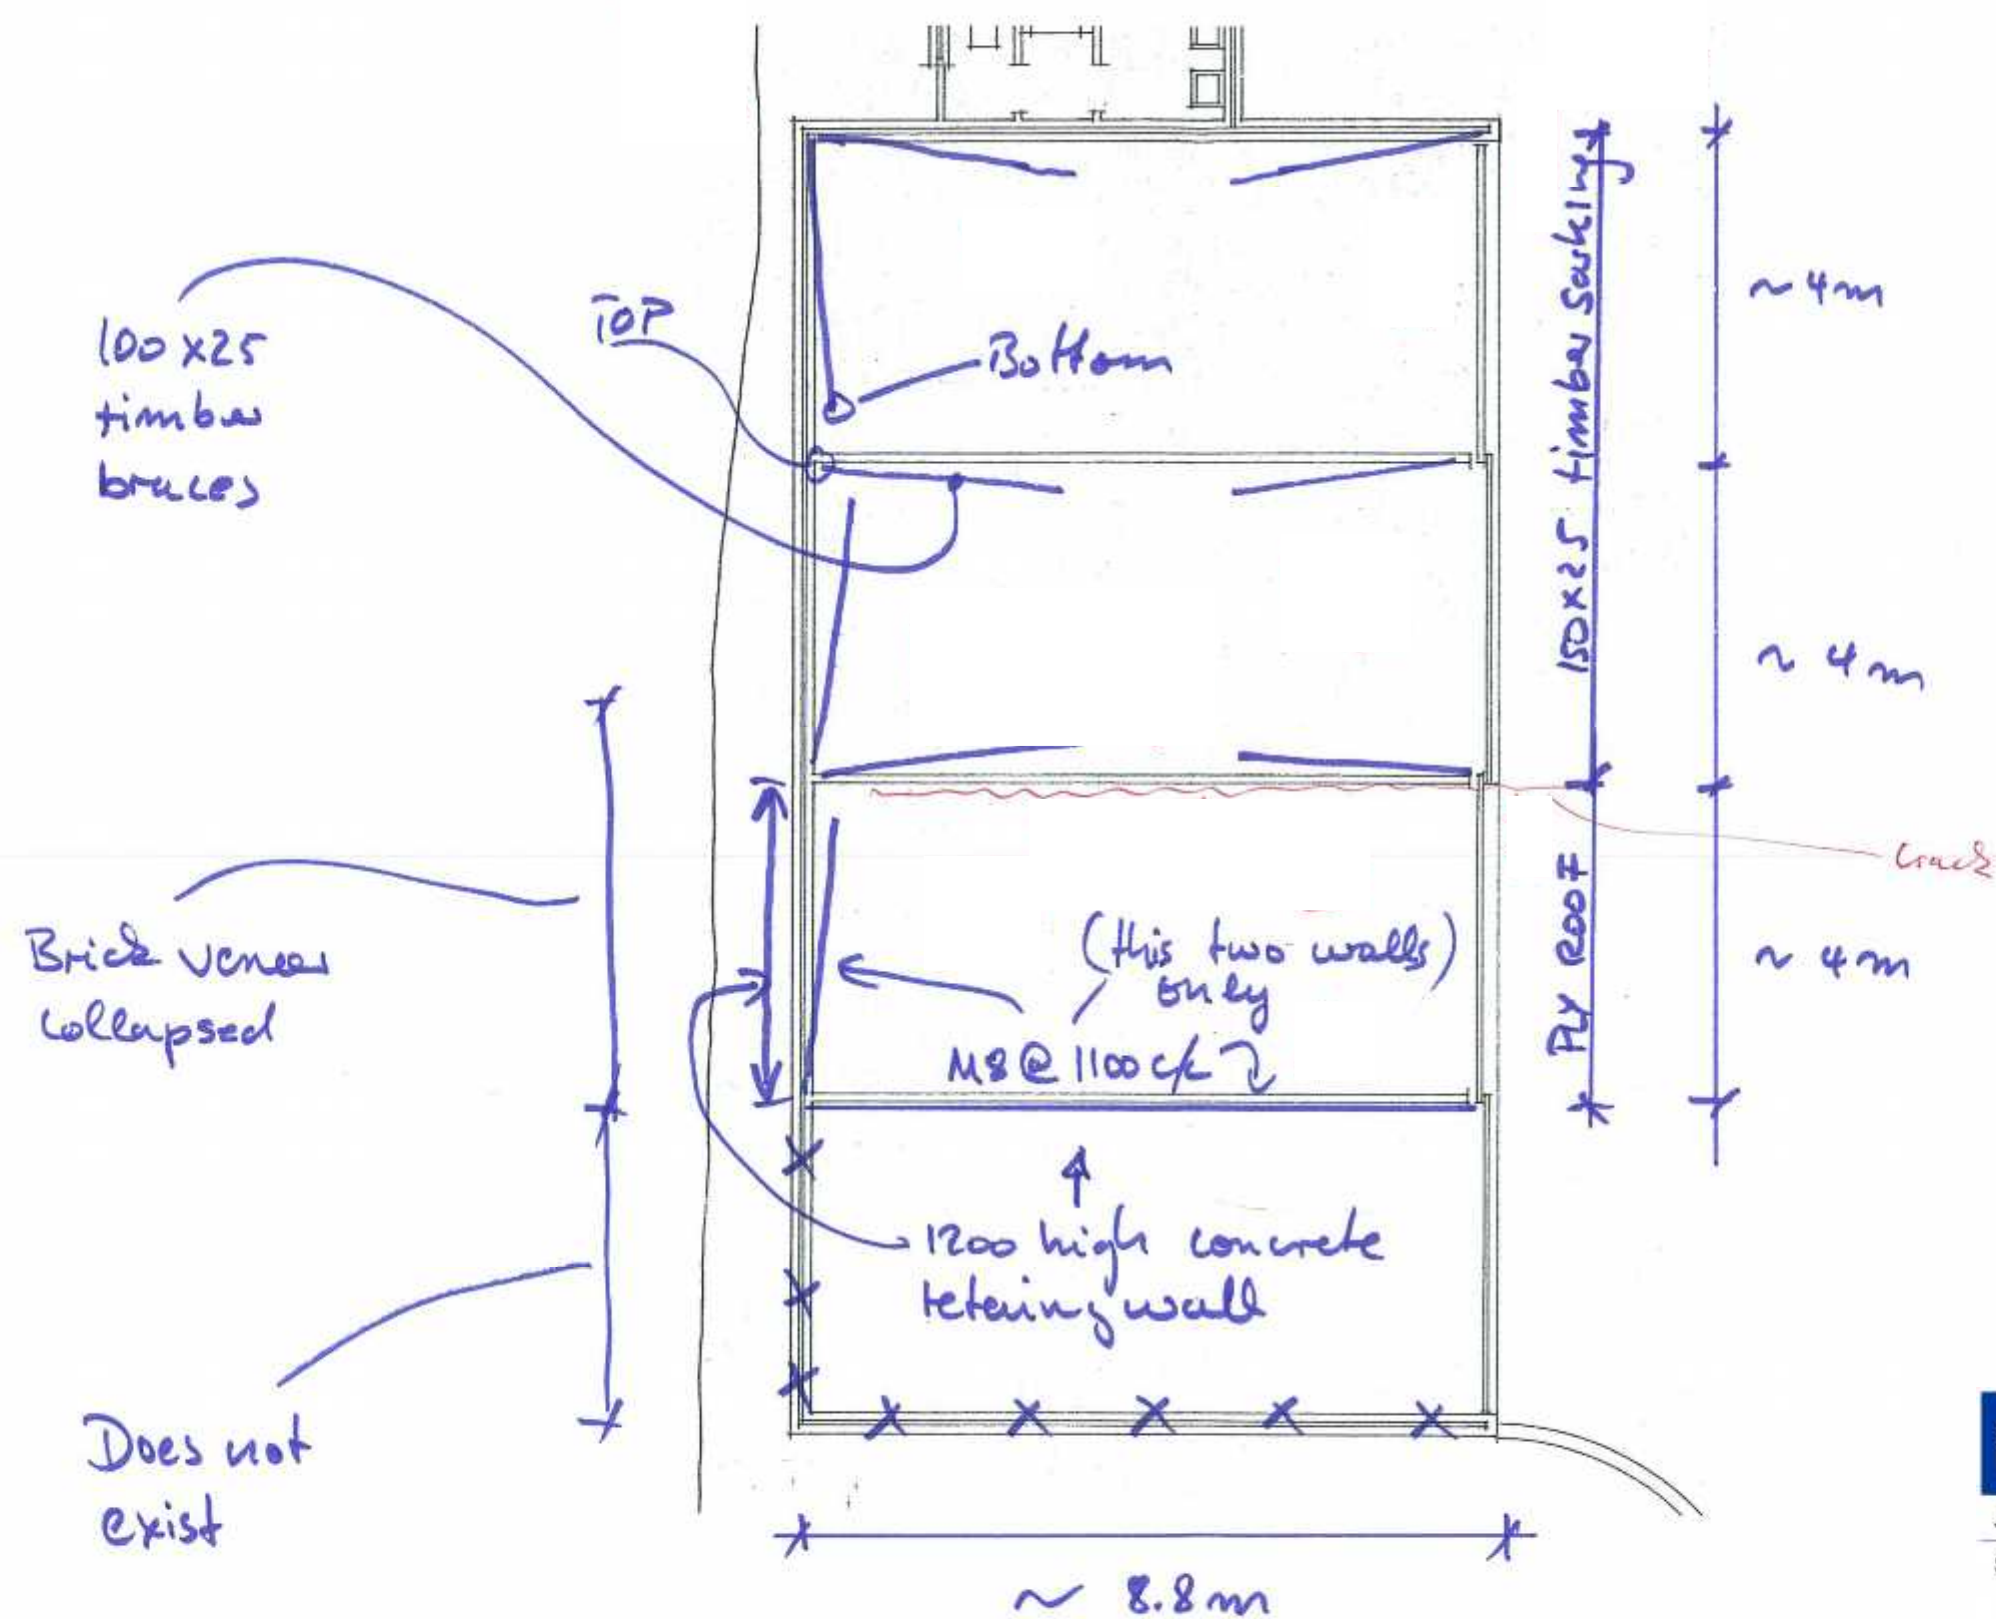 TOP
Bottom
100 x 25
timber
braces
150x25 timber sarking
~ 4m
~ 4m
crack
PLY ROOF
~ 4m
Brick veneer
collapsed
(this two walls)
only
M8 @ 1100 c/c
1200 high concrete
retaining wall
Does not
exist
~ 8.8m